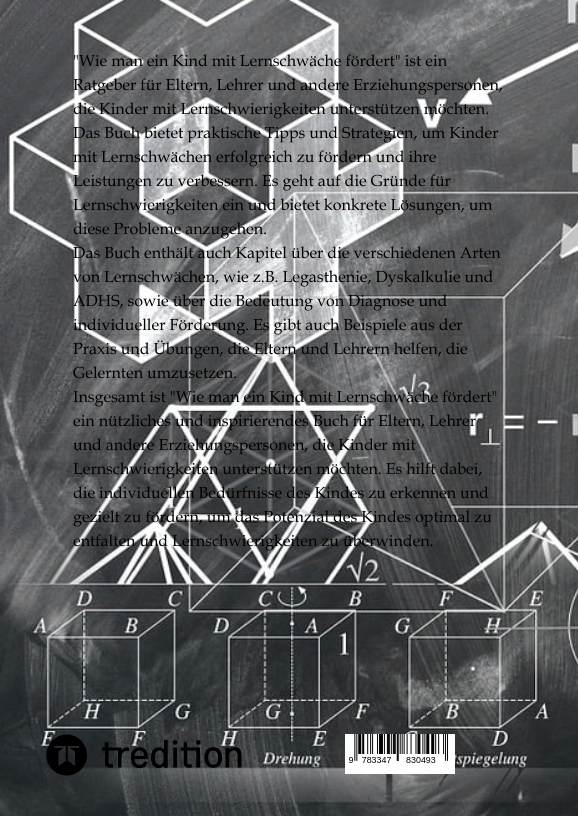 "Wie man ein Kind mit Lernschwäche fördert" ist ein
Ratgeber für Eltern, Lehrer und andere Erziehungspersonen,
die Kinder mit Lernschwierigkeiten unterstützen möchten.
Das Buch bietet praktische Tipps und Strategien, um Kinder
mit Lernschwächen erfolgreich zu fördern und ihre
Leistungen zu verbessern. Es geht auf die Gründe für
Lernschwierigkeiten ein und bietet konkrete Lösungen, um
diese Probleme anzugehen.
Das Buch enthält auch Kapitel über die verschiedenen Arten
von Lernschwächen, wie z.B. Legasthenie, Dyskalkulie und
ADHS, sowie über die Bedeutung von Diagnose und
individueller Förderung. Es gibt auch Beispiele aus der
Praxis und Übungen, die Eltern und Lehrern helfen, die
Gelernten umzusetzen.
Insgesamt ist "Wie man ein Kind mit Lernschwäche fördert"
ein nützliches und inspirierendes Buch für Eltern, Lehrer
und andere Erziehungspersonen, die Kinder mit
Lernschwierigkeiten unterstützen möchten. Es hilft dabei,
die individuellen Bedürfnisse des Kindes zu erkennen und
gezielt zu fördern, um das Potenzial des Kindes optimal zu
entfalten und Lernschwierigkeiten zu überwinden.
V
√3
r⊥ = −
√2
D C C B F E
A B D A G H
1
H G G F B A
E F H E D
tredition
Drehung
spiegelung
9 783347 830493